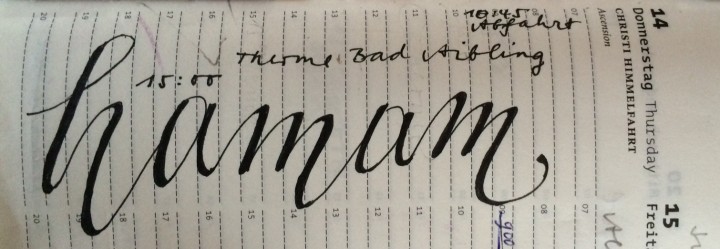 10:45
Abfahrt
Therme Bad Aibling
15:00
hamam
14
Donnerstag Thursday
CHRISTI HIMMELFAHRT
Ascension
15
Freit
07
08
10
11
12
13
14
15
16
17
18
19
20
07
08
900
10
11
12
13
14
15
16
17
18
19
20